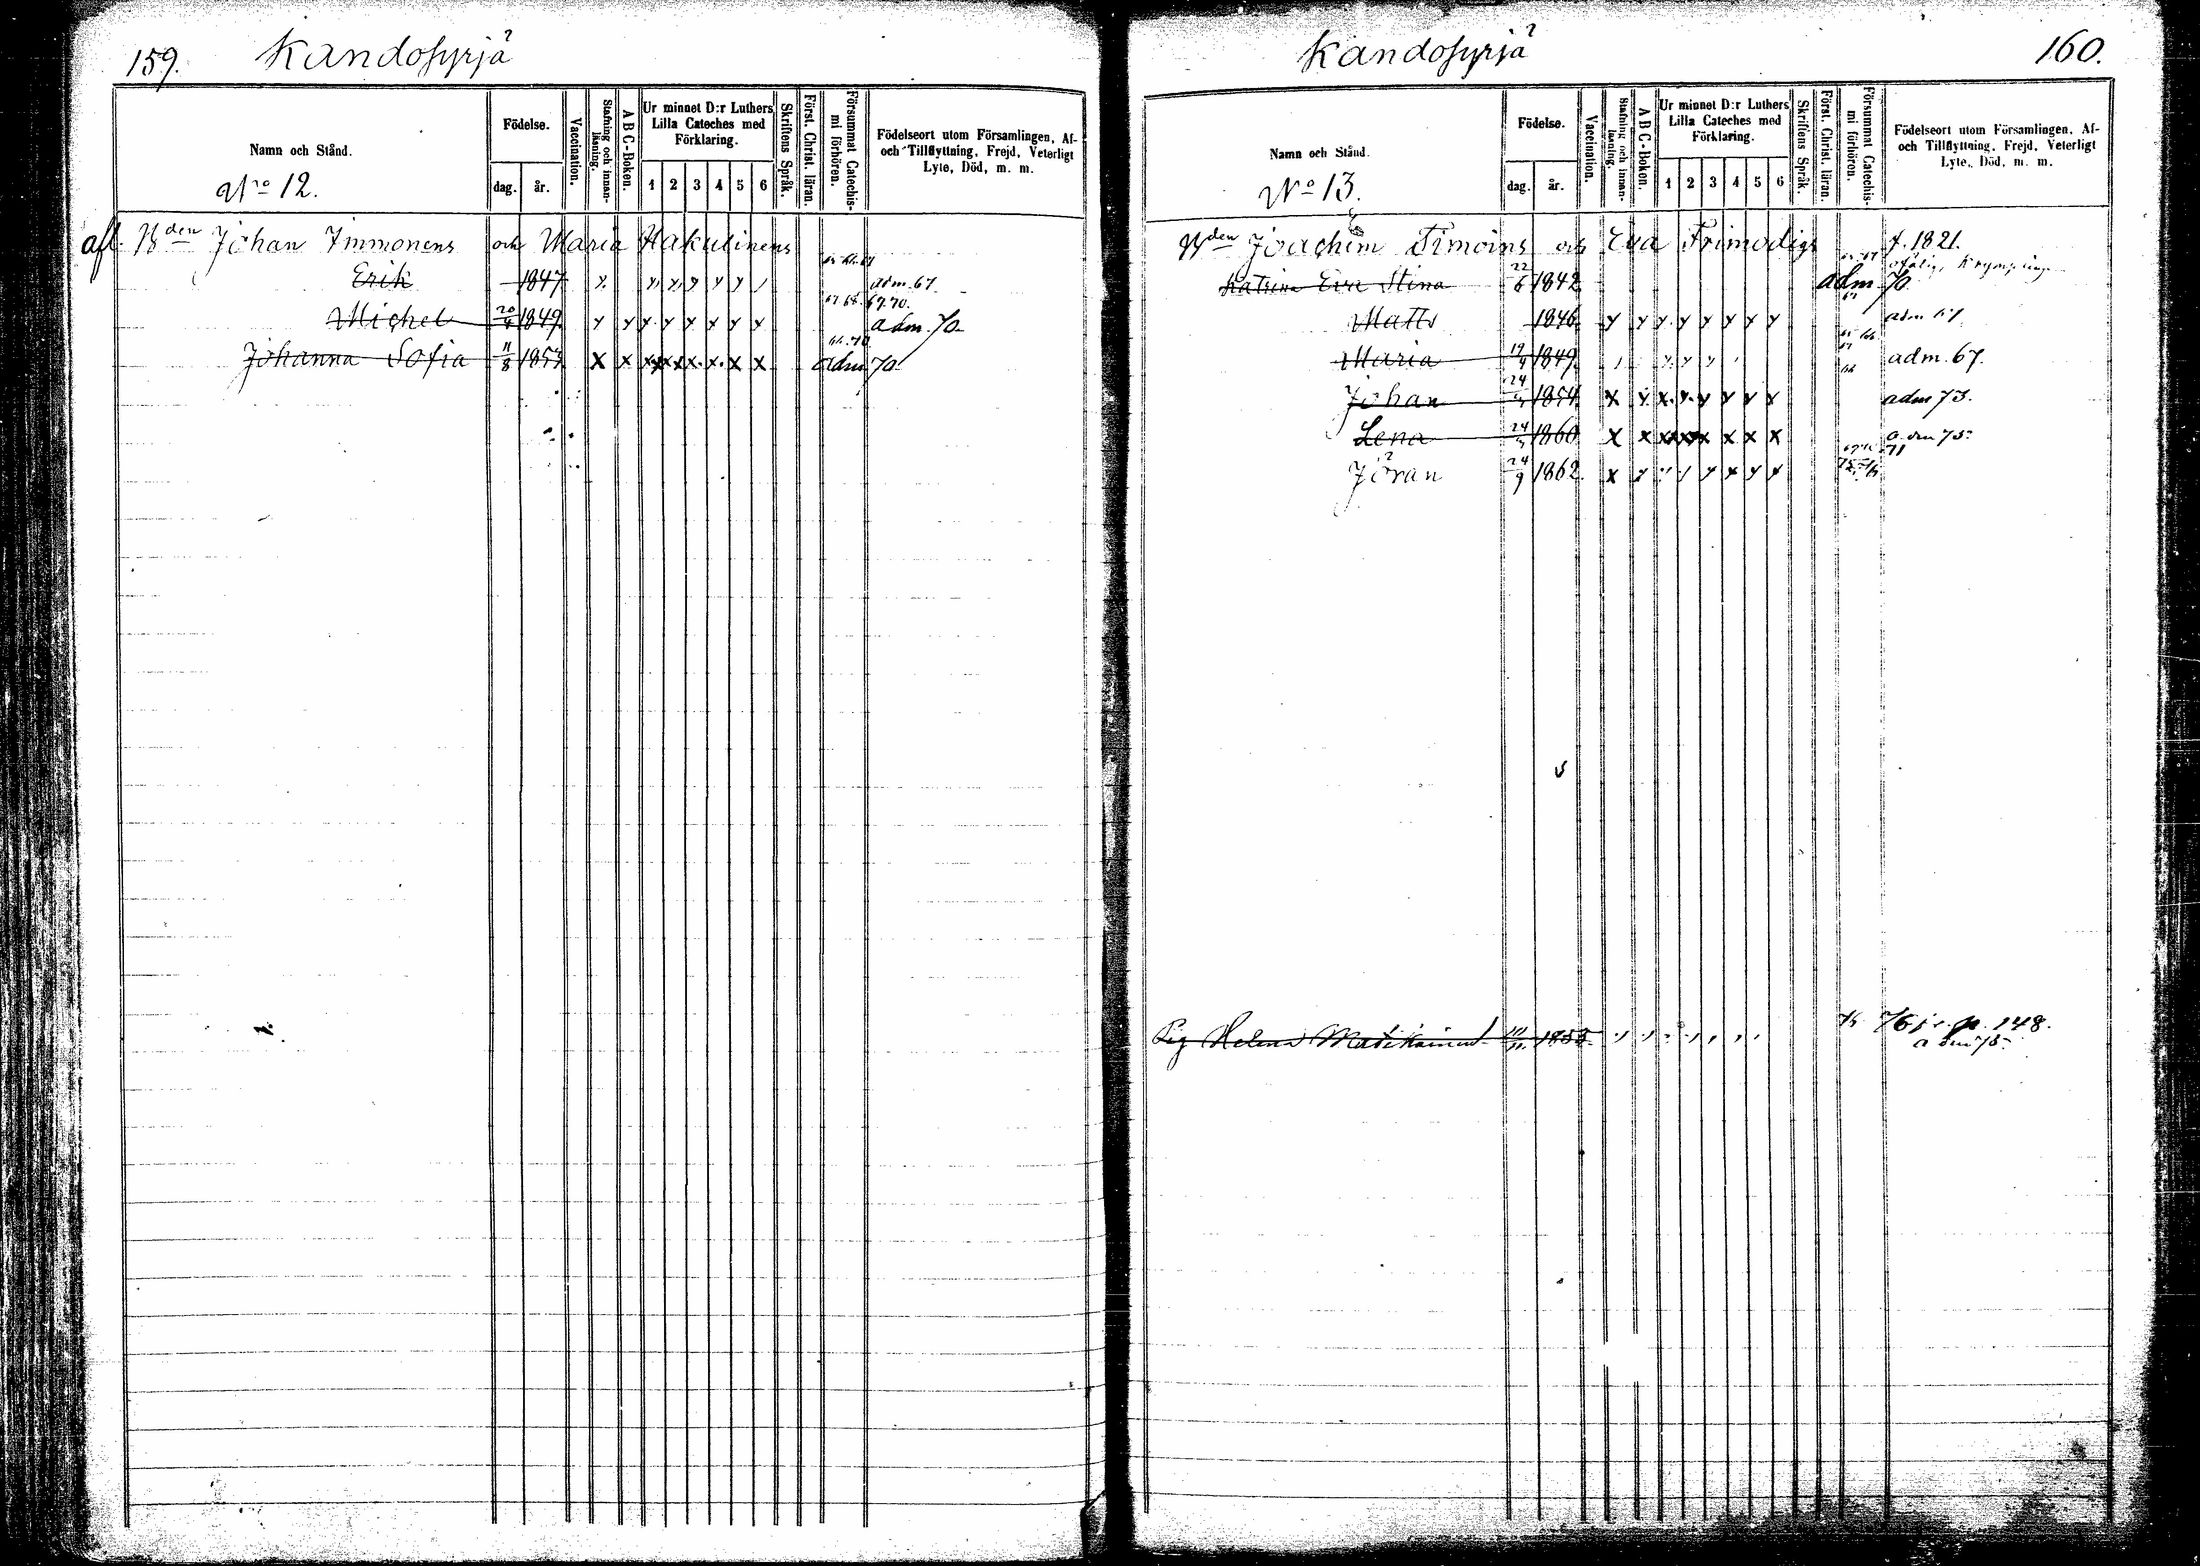 159. Kandosyrjä
Namn och Stånd.
Födelse.
dag. år.
Vaccination.
Stafning och innan-
läsning.
A B C-Boken.
Ur minnet D:r Luthers
Lilla Cateches med
Förklaring.
1 2 3 4 5 6
Skriftens Språk.
Först. Christ. läran.
Försummat Catechis-
mi förhören.
Födelseort utom Församlingen, Af-
och Tillflyttning, Frejd, Veterligt
Lyte, Död, m. m.
No 12.
afl. Bden Johan Immonens och Maria Hakulinens
Erik 1847 adm. 67.
67 68. 69. 70.
Michel 20/4 1849 adm. 70
Johanna Sofia 11/8 1853 x x x x x x x x adm 70
Kandosyrjä 160.
Namn och Stånd.
Födelse.
dag. år.
Vaccination.
Stafning och innan-
läsning.
A B C-Boken.
Ur minnet D:r Luthers
Lilla Cateches med
Förklaring.
1 2 3 4 5 6
Skriftens Språk.
Först. Christ. läran.
Försummat Catechis-
mi förhören.
Födelseort utom Församlingen, Af-
och Tillflyttning, Frejd, Veterligt
Lyte, Död, m. m.
No 13.
Bden Joachim Timoins och Eva Frimodigs f. 1821.
Katrina Eva Stina 22/6 1842 adm 70
Matts 1846 adm 67
Maria 19/4 1849 adm. 67.
Johan 24/4 1854 adm 73.
Lena 24/4 1860 adm 75
71
Jöran 24/9 1862
Pig Helena Matikainen 10/11 1855 76 p. 148.
adm 75